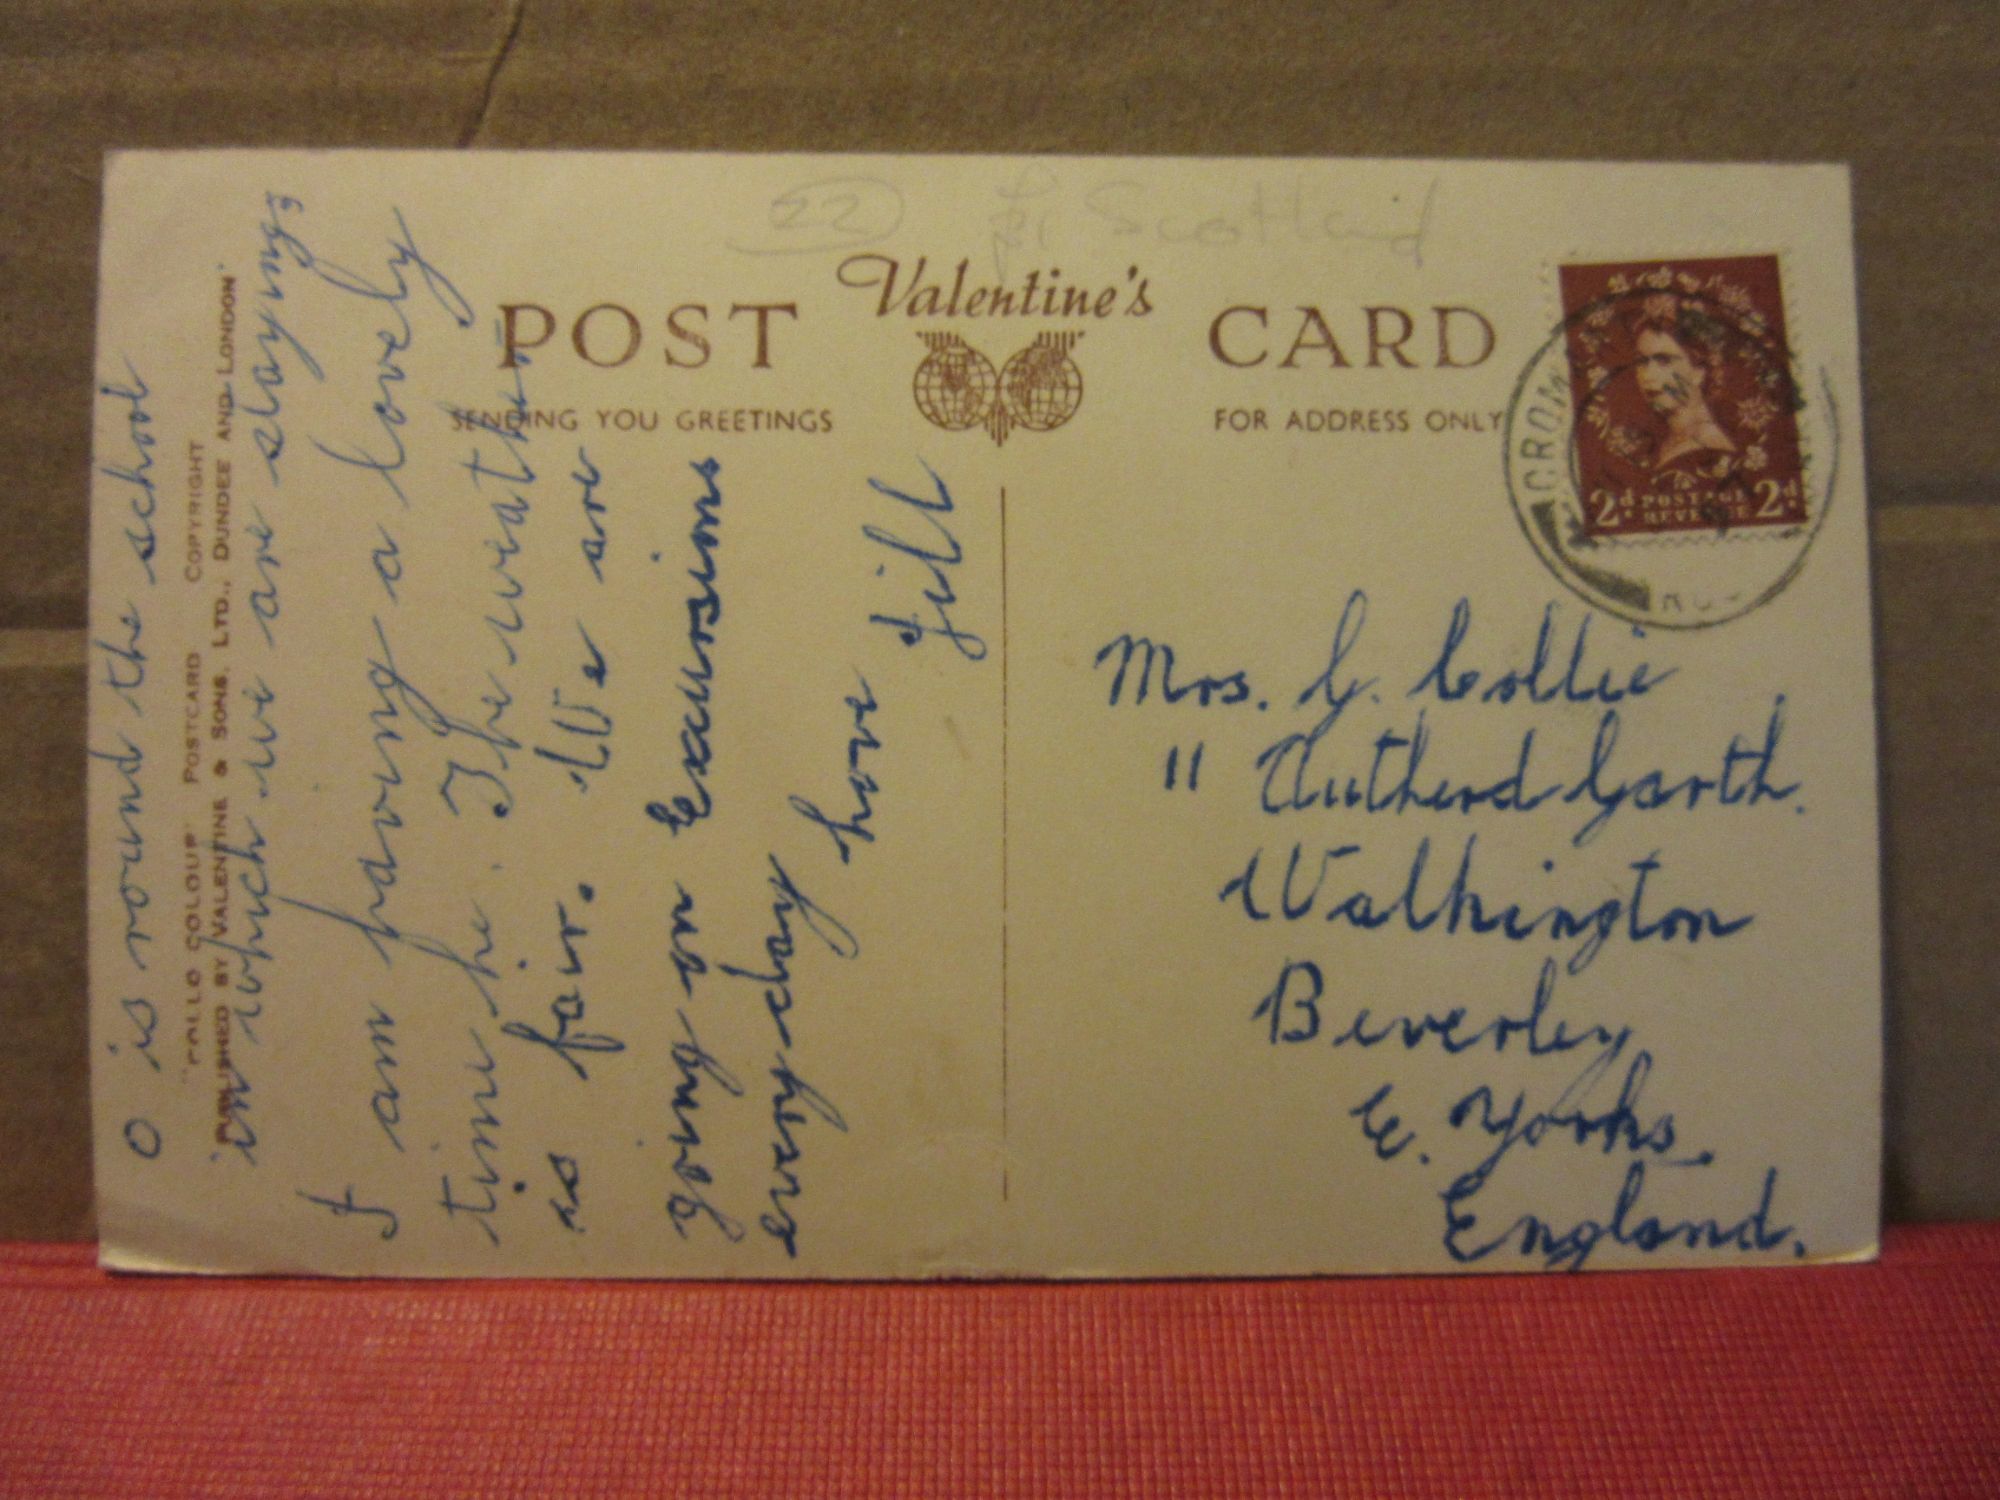 22 Scotland
POST Valentine's CARD
SENDING YOU GREETINGS
FOR ADDRESS ONLY
COLOUR" POSTCARD COPYRIGHT
PUBLISHED BY VALENTINE & SONS, LTD., DUNDEE AND LONDON
O is round the school
in which we are staying,
I am having a lovely
time he. The weather
is fair. We are
going on Excursions
every day
love
Jill
CROM
2d POSTAGE REVENUE 2d
Mrs. G. Collie
11 Autherd Garth.
Walkington
Beverley
E. Yorks.
England.